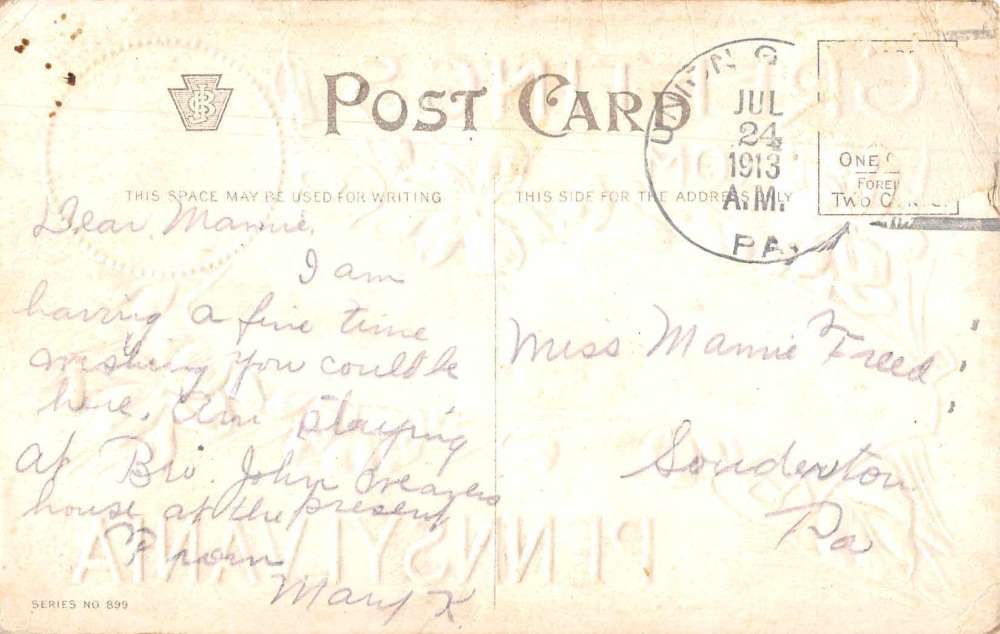 POST CARD
THIS SPACE MAY BE USED FOR WRITING
THIS SIDE FOR THE ADDRESS ONLY
JUL
24
1913
A.M.
PA.
ONE
FOREI
TWO
Dear Mamie,
I am
having a fine time
wishing you could be
here. Am staying
at Bro. John
house at the present
From
Mary K
Miss Mamie Freed
Souderton
Pa
GREETINGS
FROM
PENNSYLVANIA
SERIES NO 899